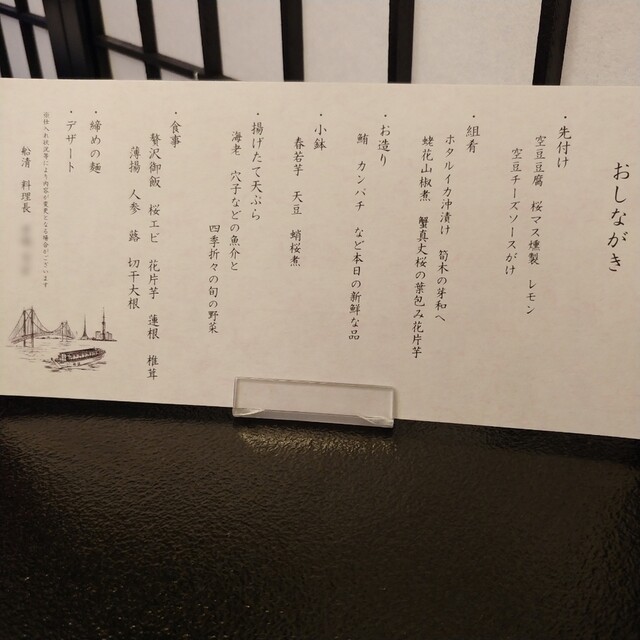 おしながき
・先付け
空豆豆腐 桜マス燻製 レモン
空豆チーズソースがけ
・組肴
ホタルイカ沖漬け 筍木の芽和へ
蛯花山椒煮 蟹真丈桜の葉包み花片芋
・お造り
鮪 カンパチ など本日の新鮮な品
・小鉢
春若芋 天豆 蛸桜煮
・揚げたて天ぷら
海老 穴子などの魚介と
四季折々の旬の野菜
・食事
贅沢御飯 桜エビ 花片芋 蓮根 椎茸
薄揚 人参 蕗 切干大根
・締めの麺
・デザート
※仕入れ状況等により内容が変更となる場合がございます
船清 料理長